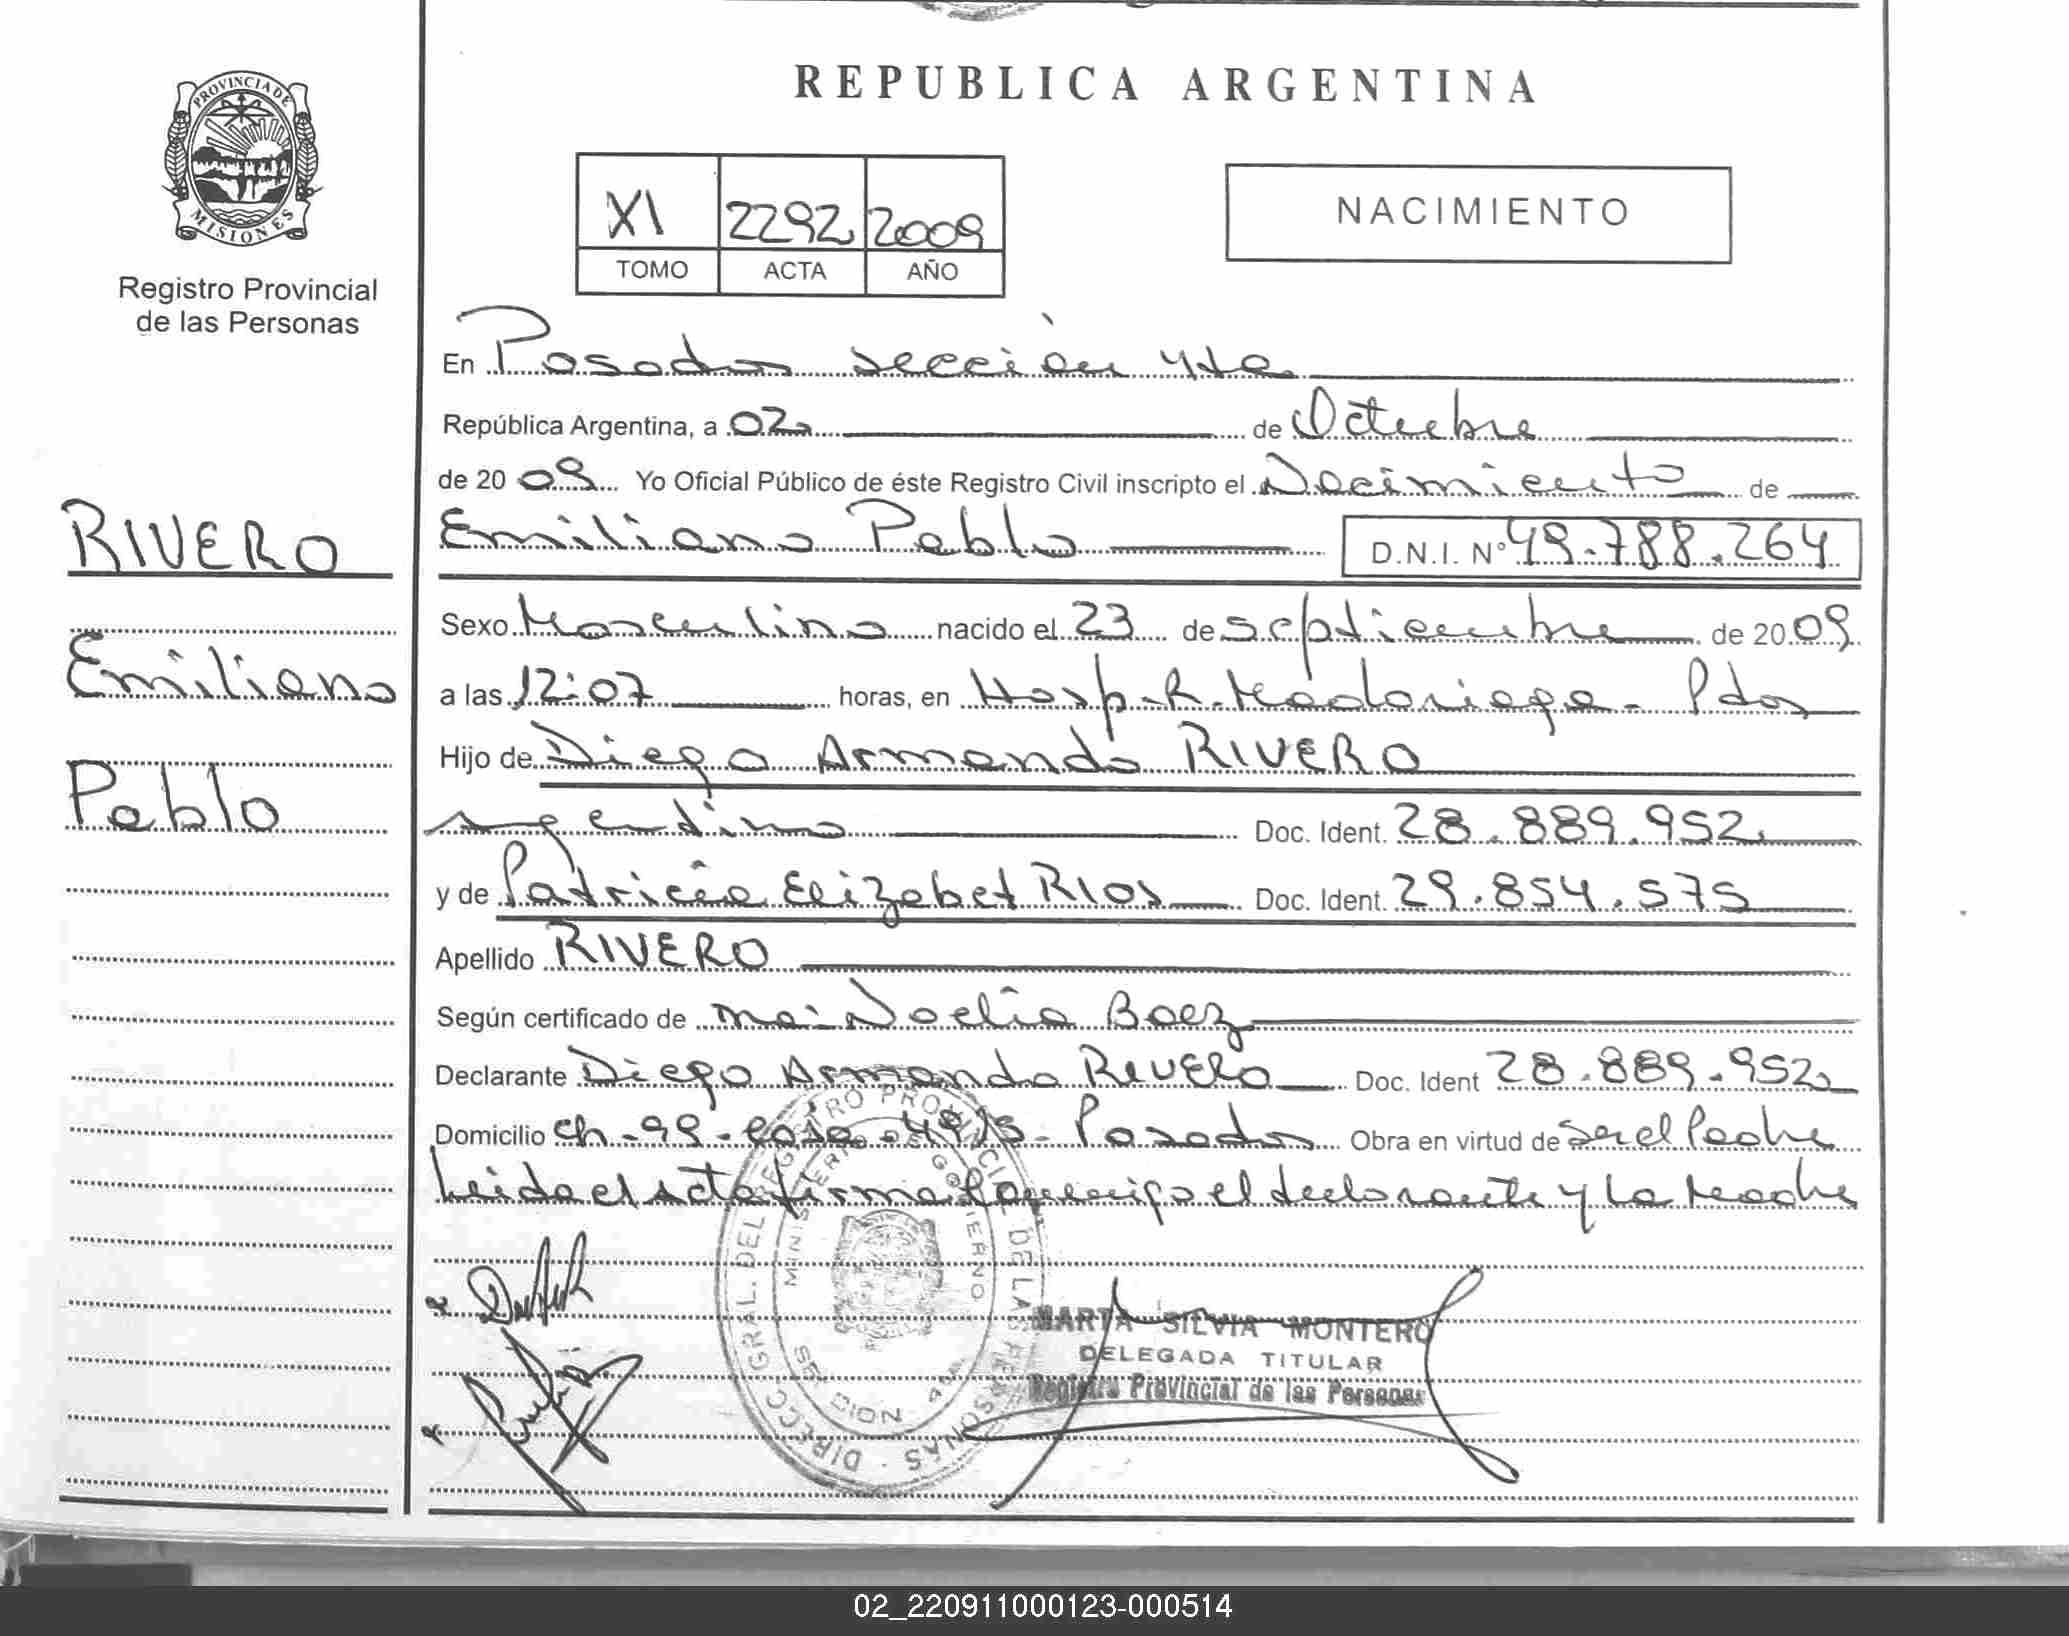 REPUBLICA ARGENTINA
PROVINCIA DE
MISIONES
Registro Provincial
de las Personas
XI 2292 2009
TOMO ACTA AÑO
NACIMIENTO
En Posadas sección 4ta
República Argentina, a 02 de Octubre
de 2009 Yo Oficial Público de éste Registro Civil inscripto el Nacimiento de
Emiliano Pablo D.N.I. Nº 49.788.264
RIVERO
Emiliano
Pablo
Sexo Masculino nacido el 23 de septiembre de 2009
a las 12:07 horas, en Hosp. R. Madariaga - Pdas
Hijo de Diego Armando RIVERO
argentino Doc. Ident. 28.889.952
y de Patricia Elizabet RIOS Doc. Ident. 29.854.575
Apellido RIVERO
Según certificado de Noelia Baez
Declarante Diego Armando Rivero Doc. Ident 28.889.952
Domicilio ch - 99 - casa - Posadas Obra en virtud de Ser el Padre
Leida el Acta firma conmigo el declarante y La Madre
DIRECC. GRAL. DEL REGISTRO PROVINCIAL DE LAS PERSONAS
MINISTERIO DE GOBIERNO
MARTA SILVIA MONTERO
DELEGADA TITULAR
Registro Provincial de las Personas
02_220911000123-000514